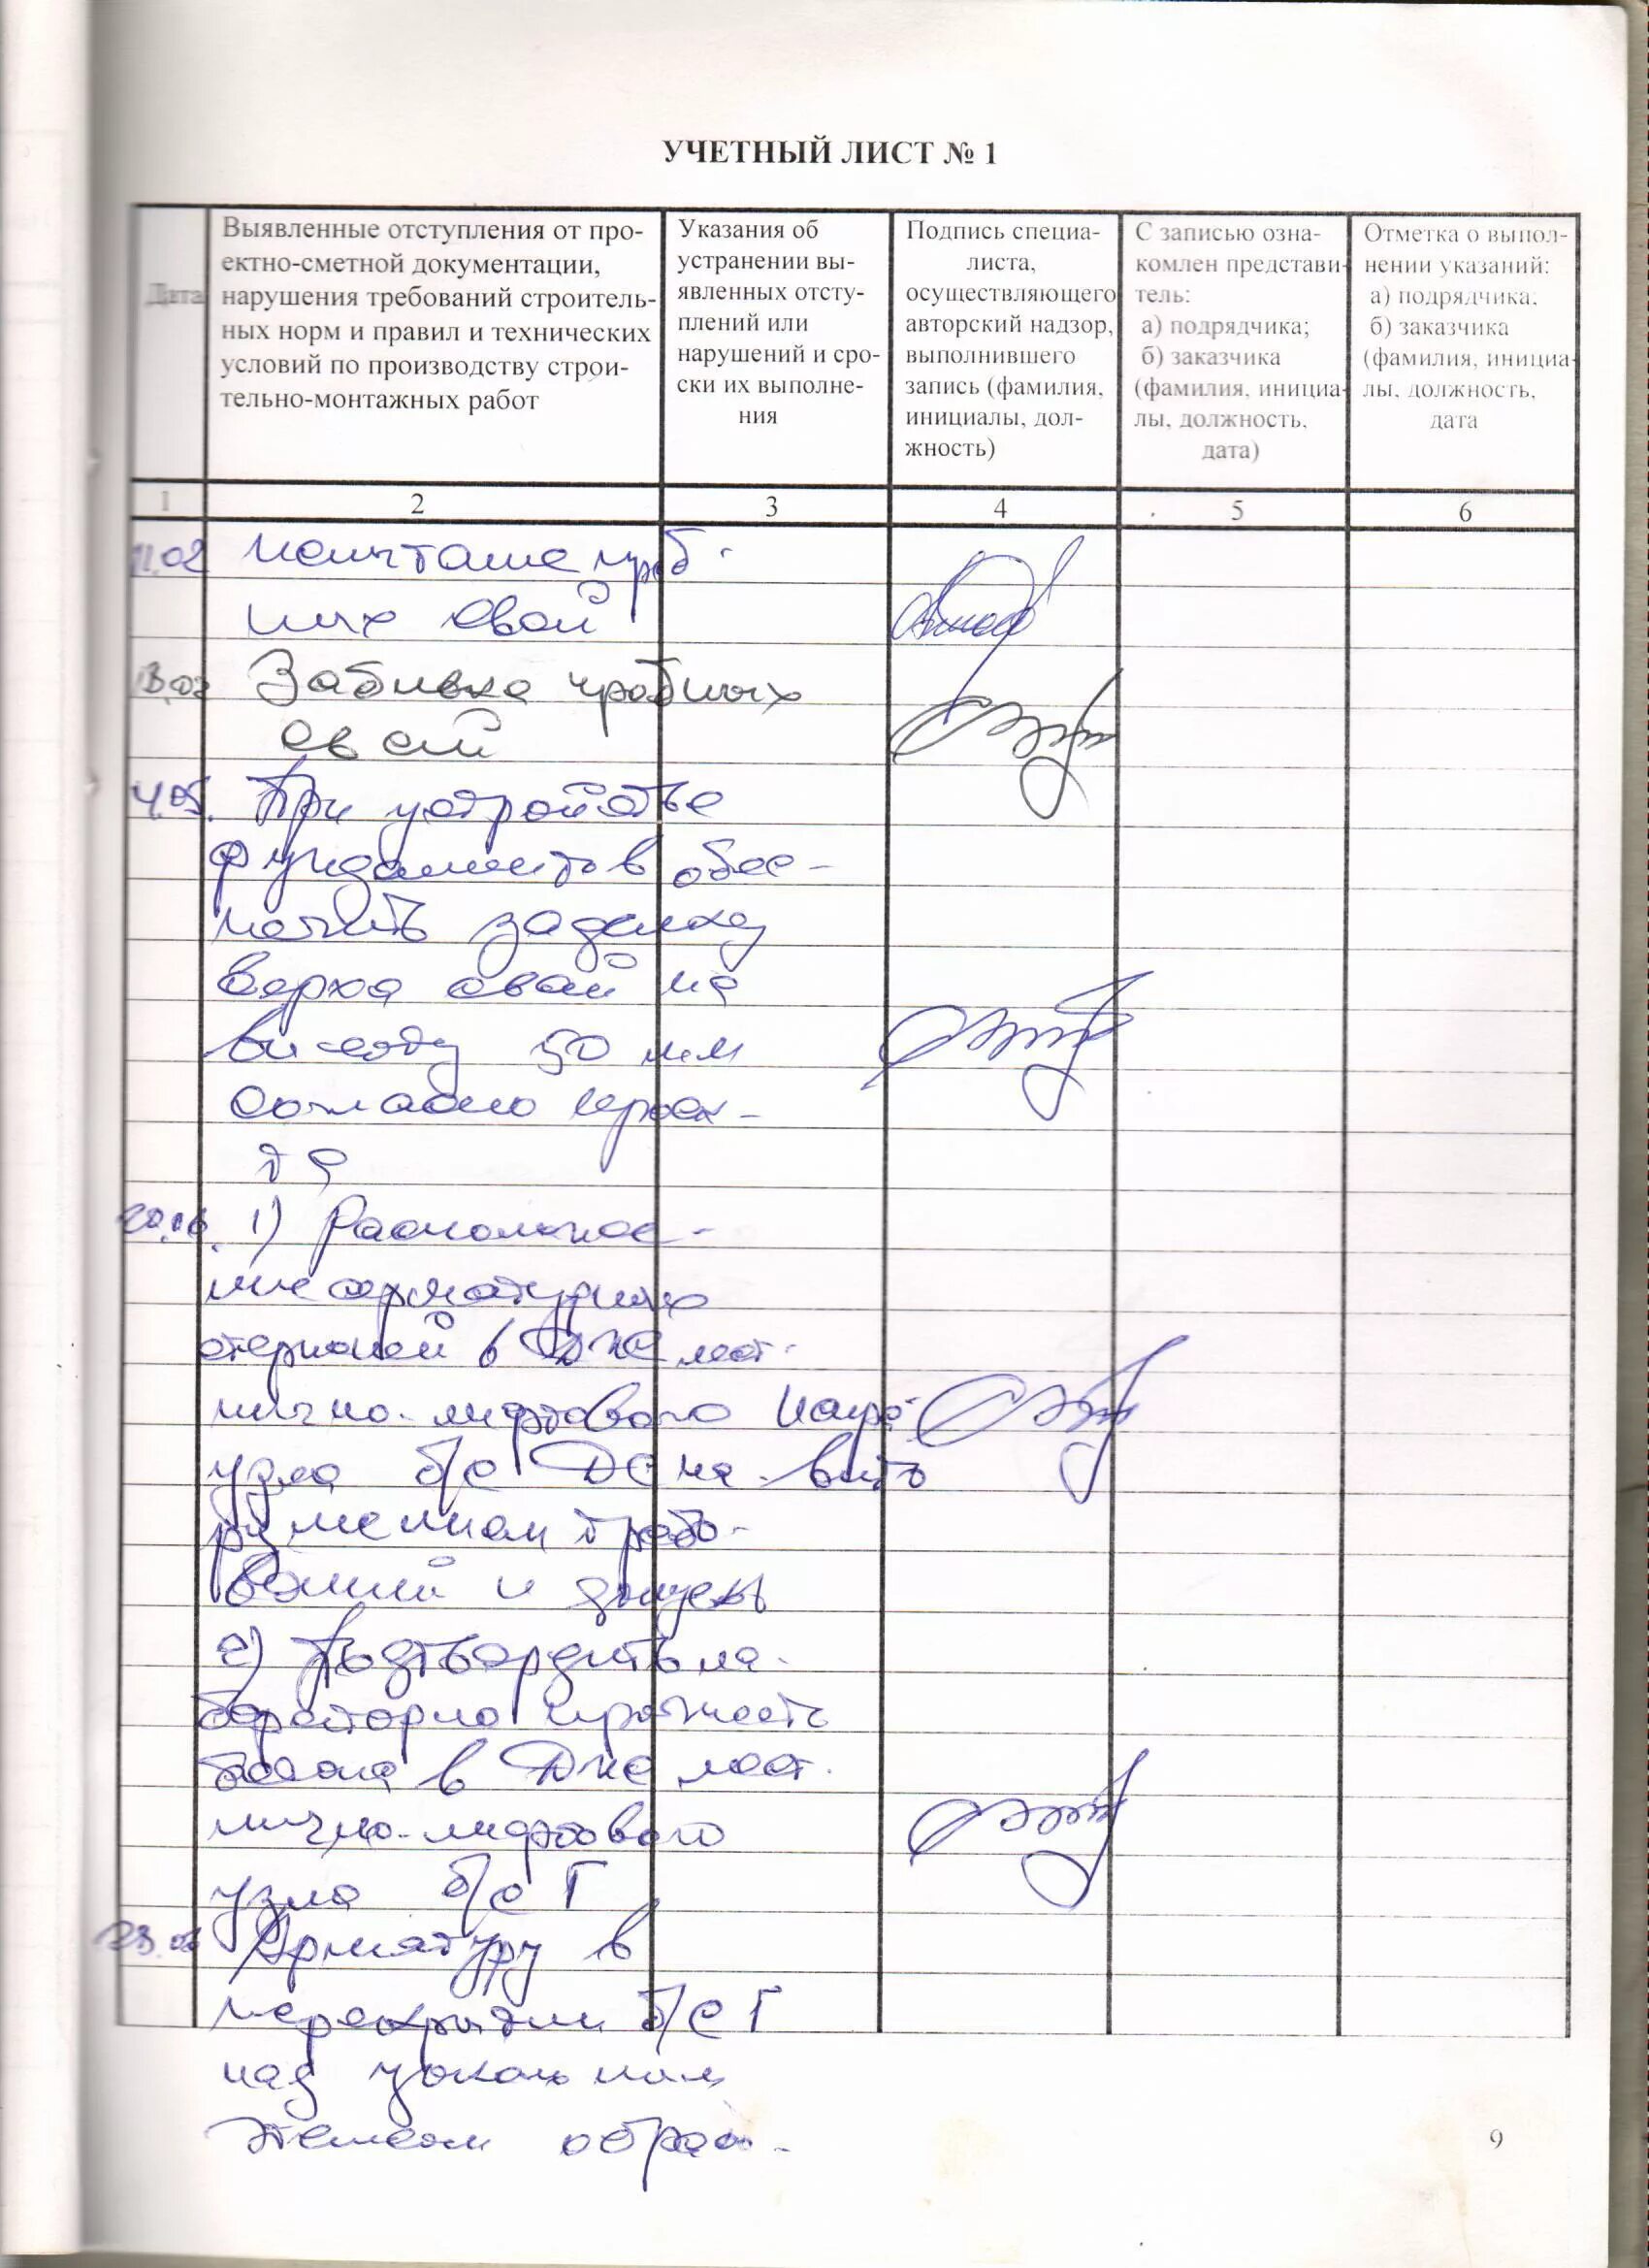 УЧЕТНЫЙ ЛИСТ № 1
Дата
Выявленные отступления от про-
ектно-сметной документации,
нарушения требований строитель-
ных норм и правил и технических
условий по производству строи-
тельно-монтажных работ
Указания об
устранении вы-
явленных отсту-
плений или
нарушений и сро-
ски их выполне-
ния
Подпись специа-
листа,
осуществляющего
авторский надзор,
выполнившего
запись (фамилия,
инициалы, дол-
жность)
С записью озна-
комлен представи-
тель:
а) подрядчика;
б) заказчика
(фамилия, инициа-
лы, должность,
дата)
Отметка о выпол-
нении указаний:
а) подрядчика;
б) заказчика
(фамилия, инициа-
лы, должность,
дата
1 2 3 4 5 6
11.02 Испытание проб-
ных свай
13.02 Забивка пробных
свай
4.05. При устройстве
фундаментов обес-
печить заделку
верха свай на
высоту 50 мм
согласно проек-
та
20.06. 1) Расположе-
ние арматурных
стержней в ДЖ лест-
нично-лифтового
узла б/с
требо-
ваний и
2) Подтвердить ла-
бораторно прочность
бетона в ДЖ лест-
нично-лифтового
узла б/с Г
23.06 Арматуру в
перекрытии б/с Г
над цокольным
этажом
9